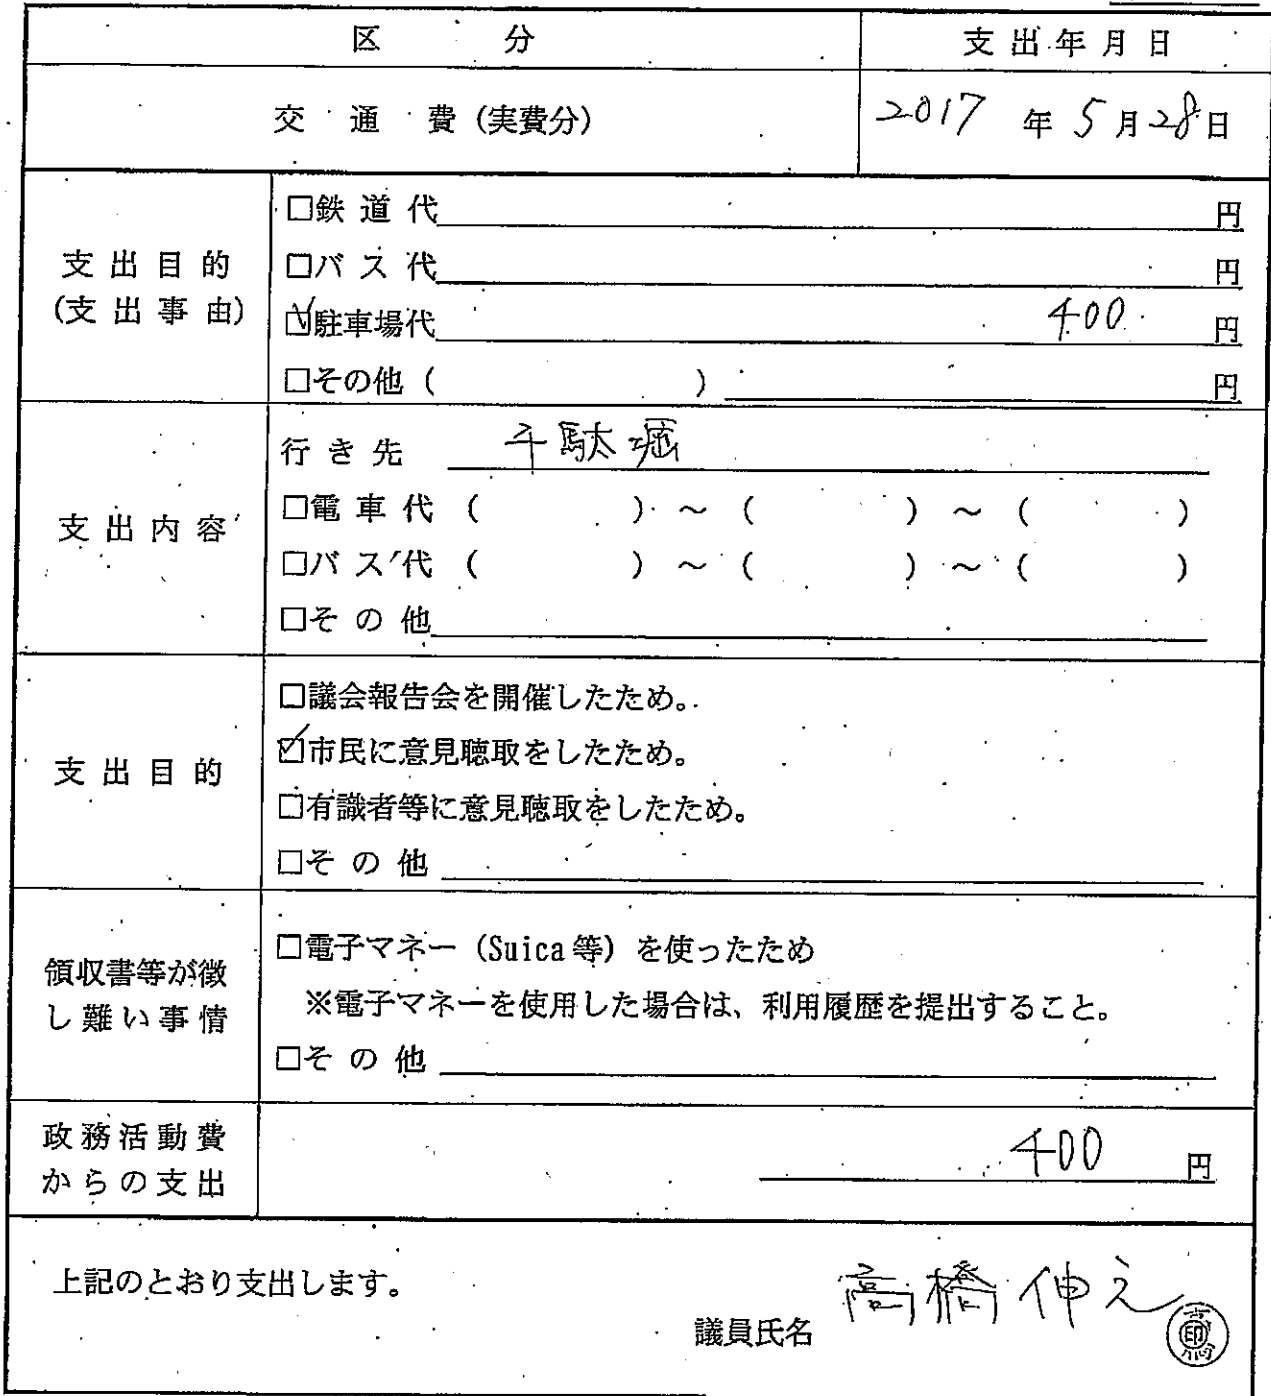 区 分 支出年月日
交通費(実費分) 2017 年 5 月 28 日
支出目的
(支出事由)
□鉄道代 円
□バス代 円
☑駐車場代 400 円
□その他( ) 円
支出内容
行き先 千駄堀
□電車代( )~( )~( )
□バス代( )~( )~( )
□その他
支出目的
□議会報告会を開催したため。
☑市民に意見聴取をしたため。
□有識者等に意見聴取をしたため。
□その他
領収書等が徴
し難い事情
□電子マネー(Suica等)を使ったため
※電子マネーを使用した場合は、利用履歴を提出すること。
□その他
政務活動費
からの支出
400 円
上記のとおり支出します。
議員氏名 高橋伸之
印